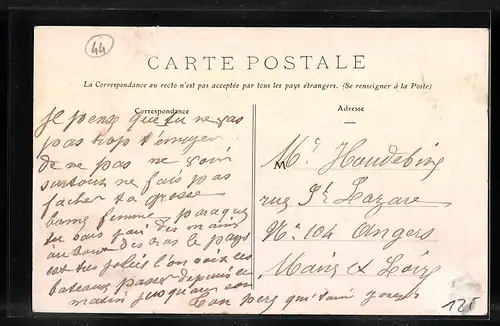 44
CARTE POSTALE
La Correspondance au recto n'est pas acceptée par tous les pays étrangers. (Se renseigner à la Poste)
Correspondance
Adresse
Je pense que tu ne vas
pas trop t'ennuyer
de ne pas me voir
surtout ne fais pas
facher ta grosse
bonne femme
tu sais j'ai des mains
au bout des bras le pays
est très joli l'on voit les
bateaux passer depuis ce
matin jusqu'au soir
Ton père qui t'aime
M
rue St Lazare
N° 104 Angers
Maine et Loire
12F